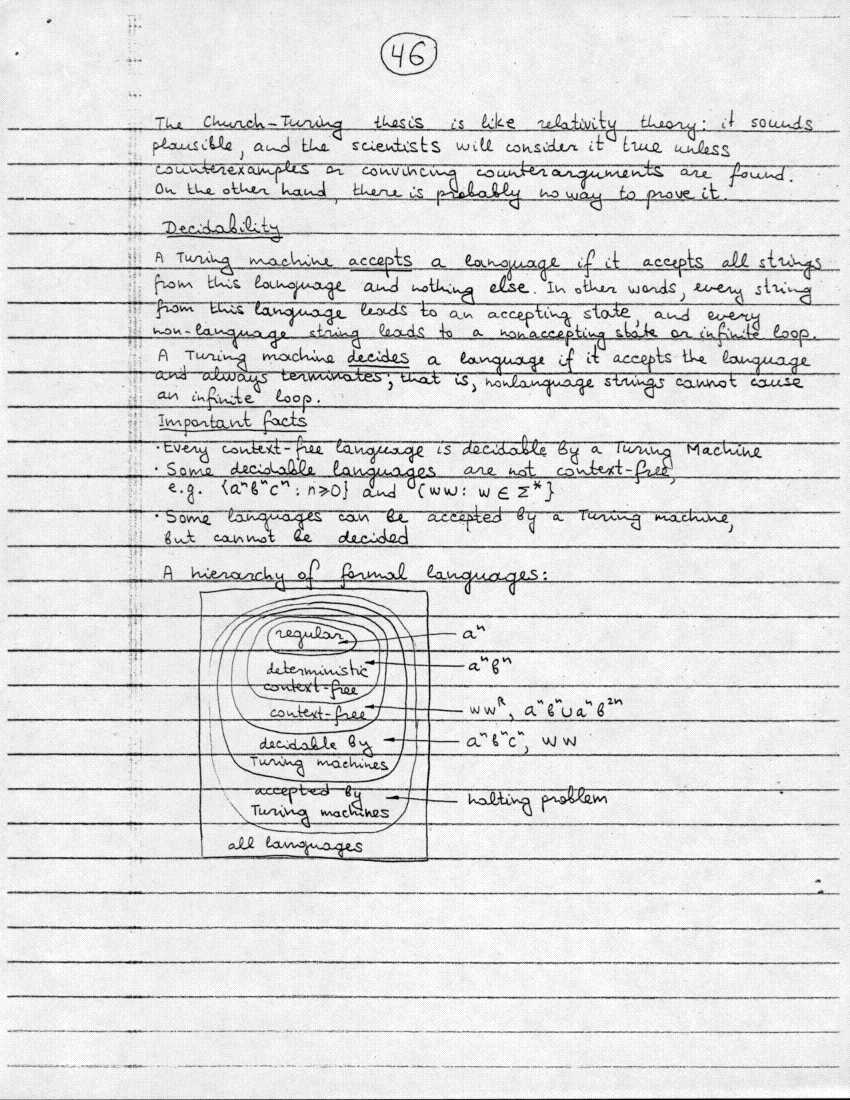 46
The Church-Turing thesis is like relativity theory: it sounds
plausible, and the scientists will consider it true unless
counterexamples or convincing counterarguments are found.
On the other hand, there is probably no way to prove it.
Decidability
A Turing machine accepts a language if it accepts all strings
from this language and nothing else. In other words, every string
from this language leads to an accepting state, and every
non-language string leads to a nonaccepting state or infinite loop.
A Turing machine decides a language if it accepts the language
and always terminates; that is, nonlanguage strings cannot cause
an infinite loop.
Important facts
· Every context-free language is decidable by a Turing Machine
· Some decidable languages are not context-free,
e.g. {aⁿbⁿcⁿ : n≥0} and {ww: w ∈ Σ*}
· Some languages can be accepted by a Turing machine,
but cannot be decided
A hierarchy of formal languages:
regular aⁿ
deterministic aⁿbⁿ
context-free
context-free wwᴿ, aⁿbⁿ∪aⁿb²ⁿ
decidable by aⁿbⁿcⁿ, ww
Turing machines
accepted by halting problem
Turing machines
all languages